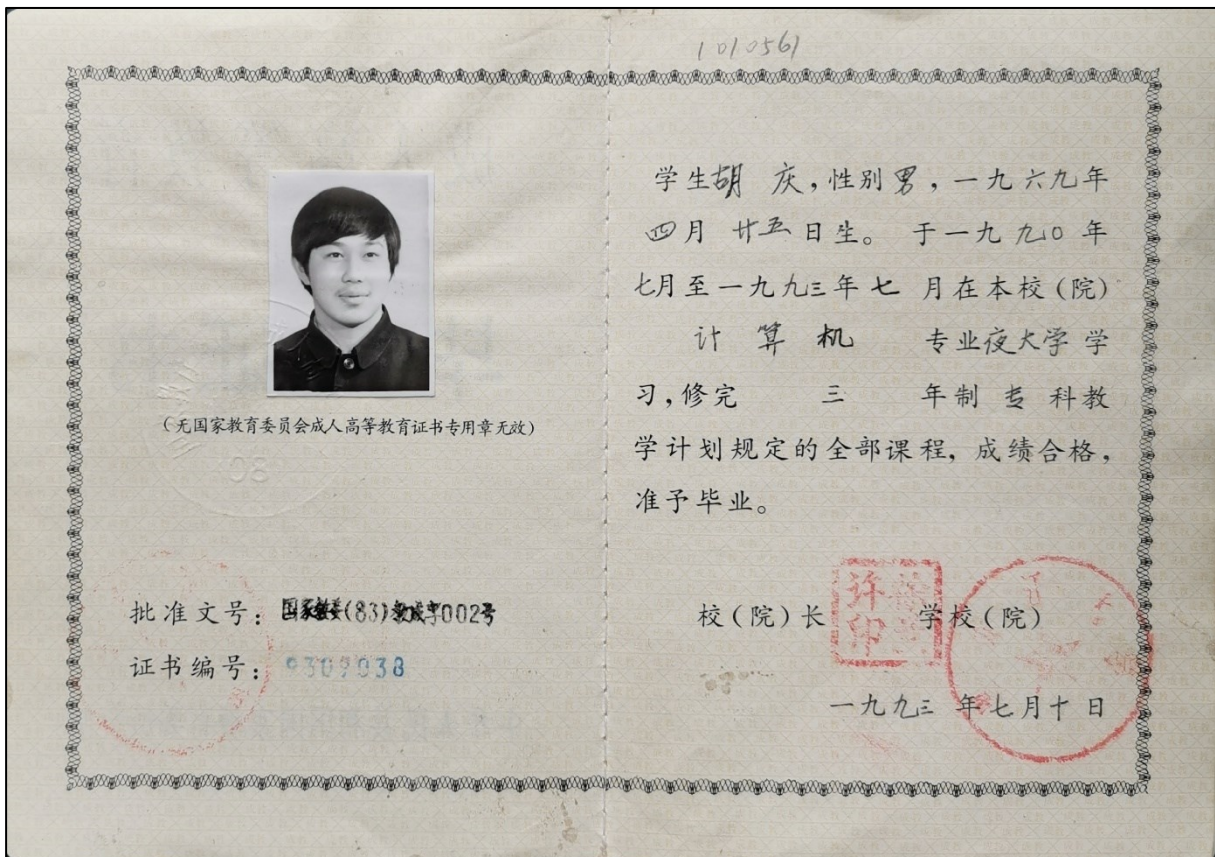 1010561
(无国家教育委员会成人高等教育证书专用章无效)
08
批准文号：国家教委(83)教成字002号
证书编号：9309038
学生胡 庆,性别男,一九六九年
四月廿五日生。于一九九0年
七月至一九九三年七月在本校(院)
计算机 专业夜大学学
习,修完 三 年制专科教
学计划规定的全部课程,成绩合格,
准予毕业。
校(院)长 学校(院)
许
印
一九九三年七月十日